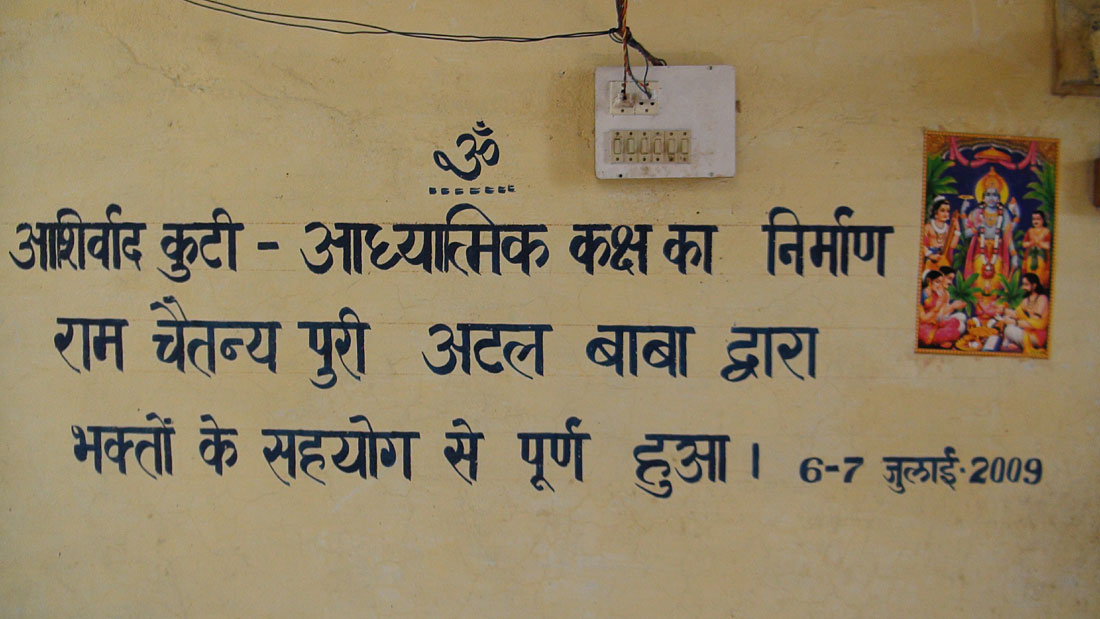 ॐ
आशिर्वाद कुटी - आध्यात्मिक कक्ष का निर्माण
राम चैतन्य पुरी अटल बाबा द्वारा
भक्तों के सहयोग से पूर्ण हुआ। 6-7 जुलाई·2009